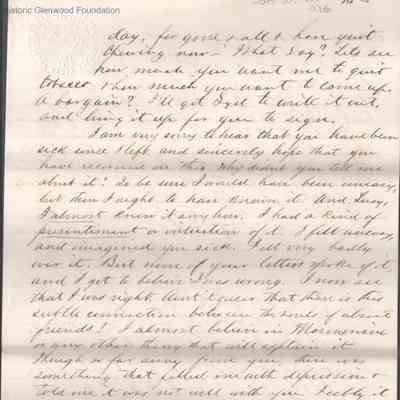 Historic Glenwood Foundation
day, for good & all & have quit
chewing now – What say? Lets see
how much you want me to quit
tobacco & how much you want to come up.
A bargain? I'll get to write it out,
and bring it up for you to sign.
I am very sorry to hear that you have been
sick since I left and sincerely hope that you
have recovered Why didn't you tell me
about it? To be sure I would have been uneasy,
but then I ought to have known it. And, Lucy,
I almost knew it any how. I had a kind of
presentiment or intuition of it. I felt uneasy,
and imagined you sick. I felt very badly
over it. But none of your letters spoke of it
and I got to believe I was wrong. I now see
that I was right. Aunt it queer that there is this
subtle connection between the souls of absent
friends? I almost believe in Mesmerism
or any other thing that will explain it
though so far away from you, there was
something that filled me with depression &
told me it was not well with you I it